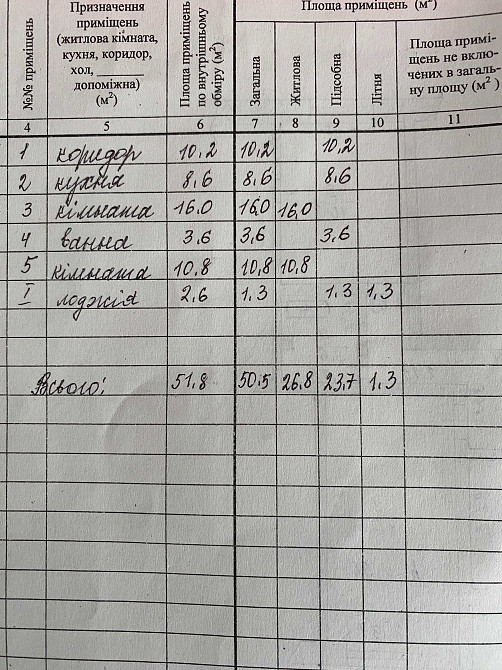 Площа приміщень (м²)
№№ приміщень
Призначення
приміщення
(житлова кімната,
кухня, коридор,
хол, ________
допоміжна)
(м²)
Площа приміщень
по внутрішньому
обміру (м²)
Загальна
Житлова
Підсобна
Літня
Площа примі-
щень не вклю-
чених в загаль-
ну площу (м²)
4 5 6 7 8 9 10 11
1 коридор 10,2 10,2 10,2
2 кухня 8,6 8,6 8,6
3 кімната 16,0 16,0 16,0
4 ванна 3,6 3,6 3,6
5 кімната 10,8 10,8 10,8
I лоджія 2,6 1,3 1,3 1,3
Всього: 51,8 50,5 26,8 23,7 1,3